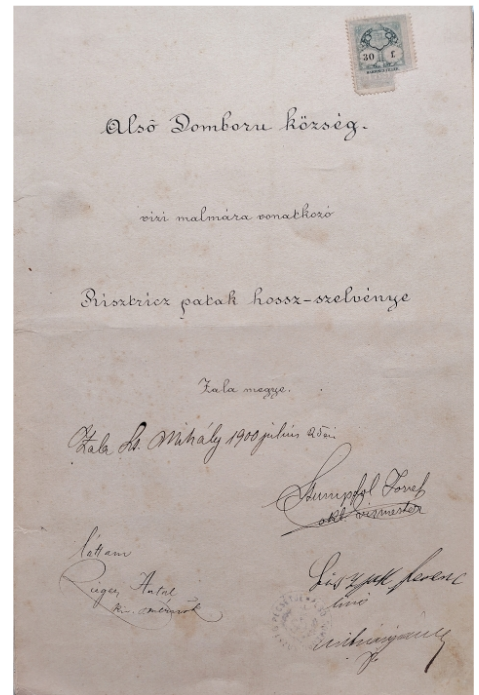 30 f.
Alsó Domboru község.
vizi malmára vonatkozó
Bisztricz patak hossz-szelvénye
Zala megye.
Zala Sz. Mihály 1900 július 25én
Stumpfol József
okl. vizmester
láttam
Rieger Antal
kir. mérnök
Ferenc